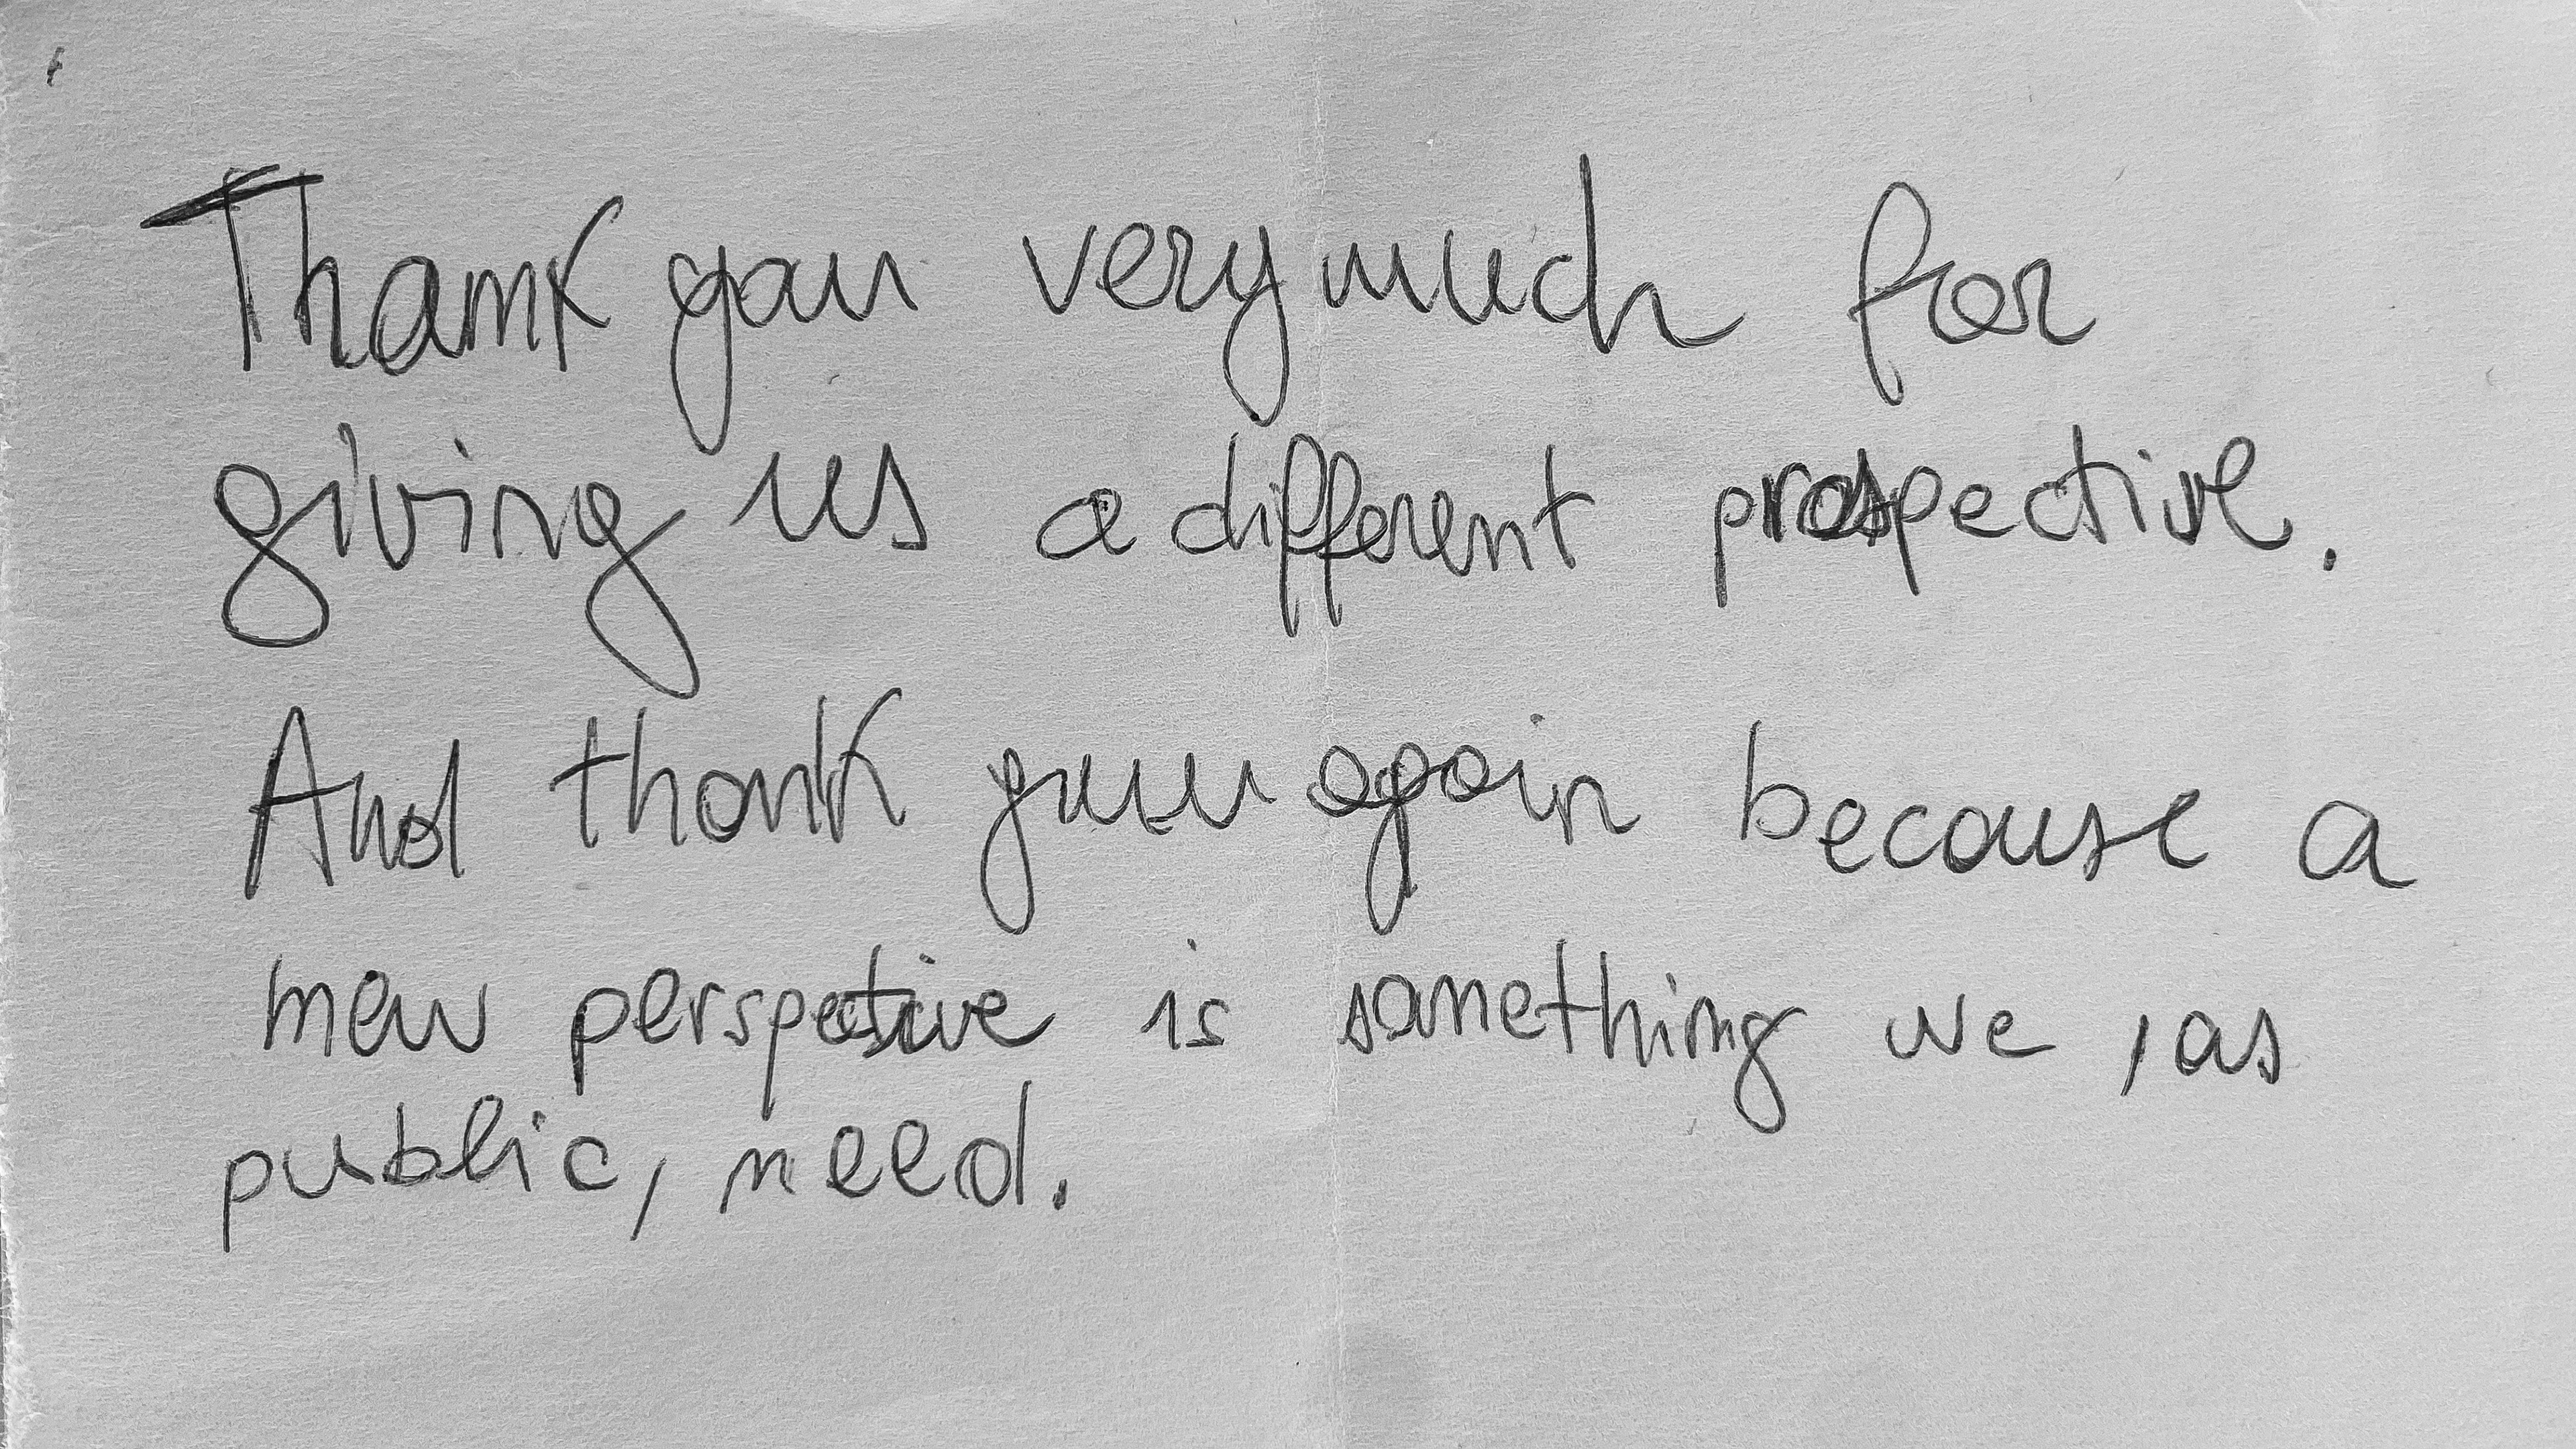 Thank you very much for
giving us a different prospective.
And thank you again because a
new perspective is something we, as
public, need.